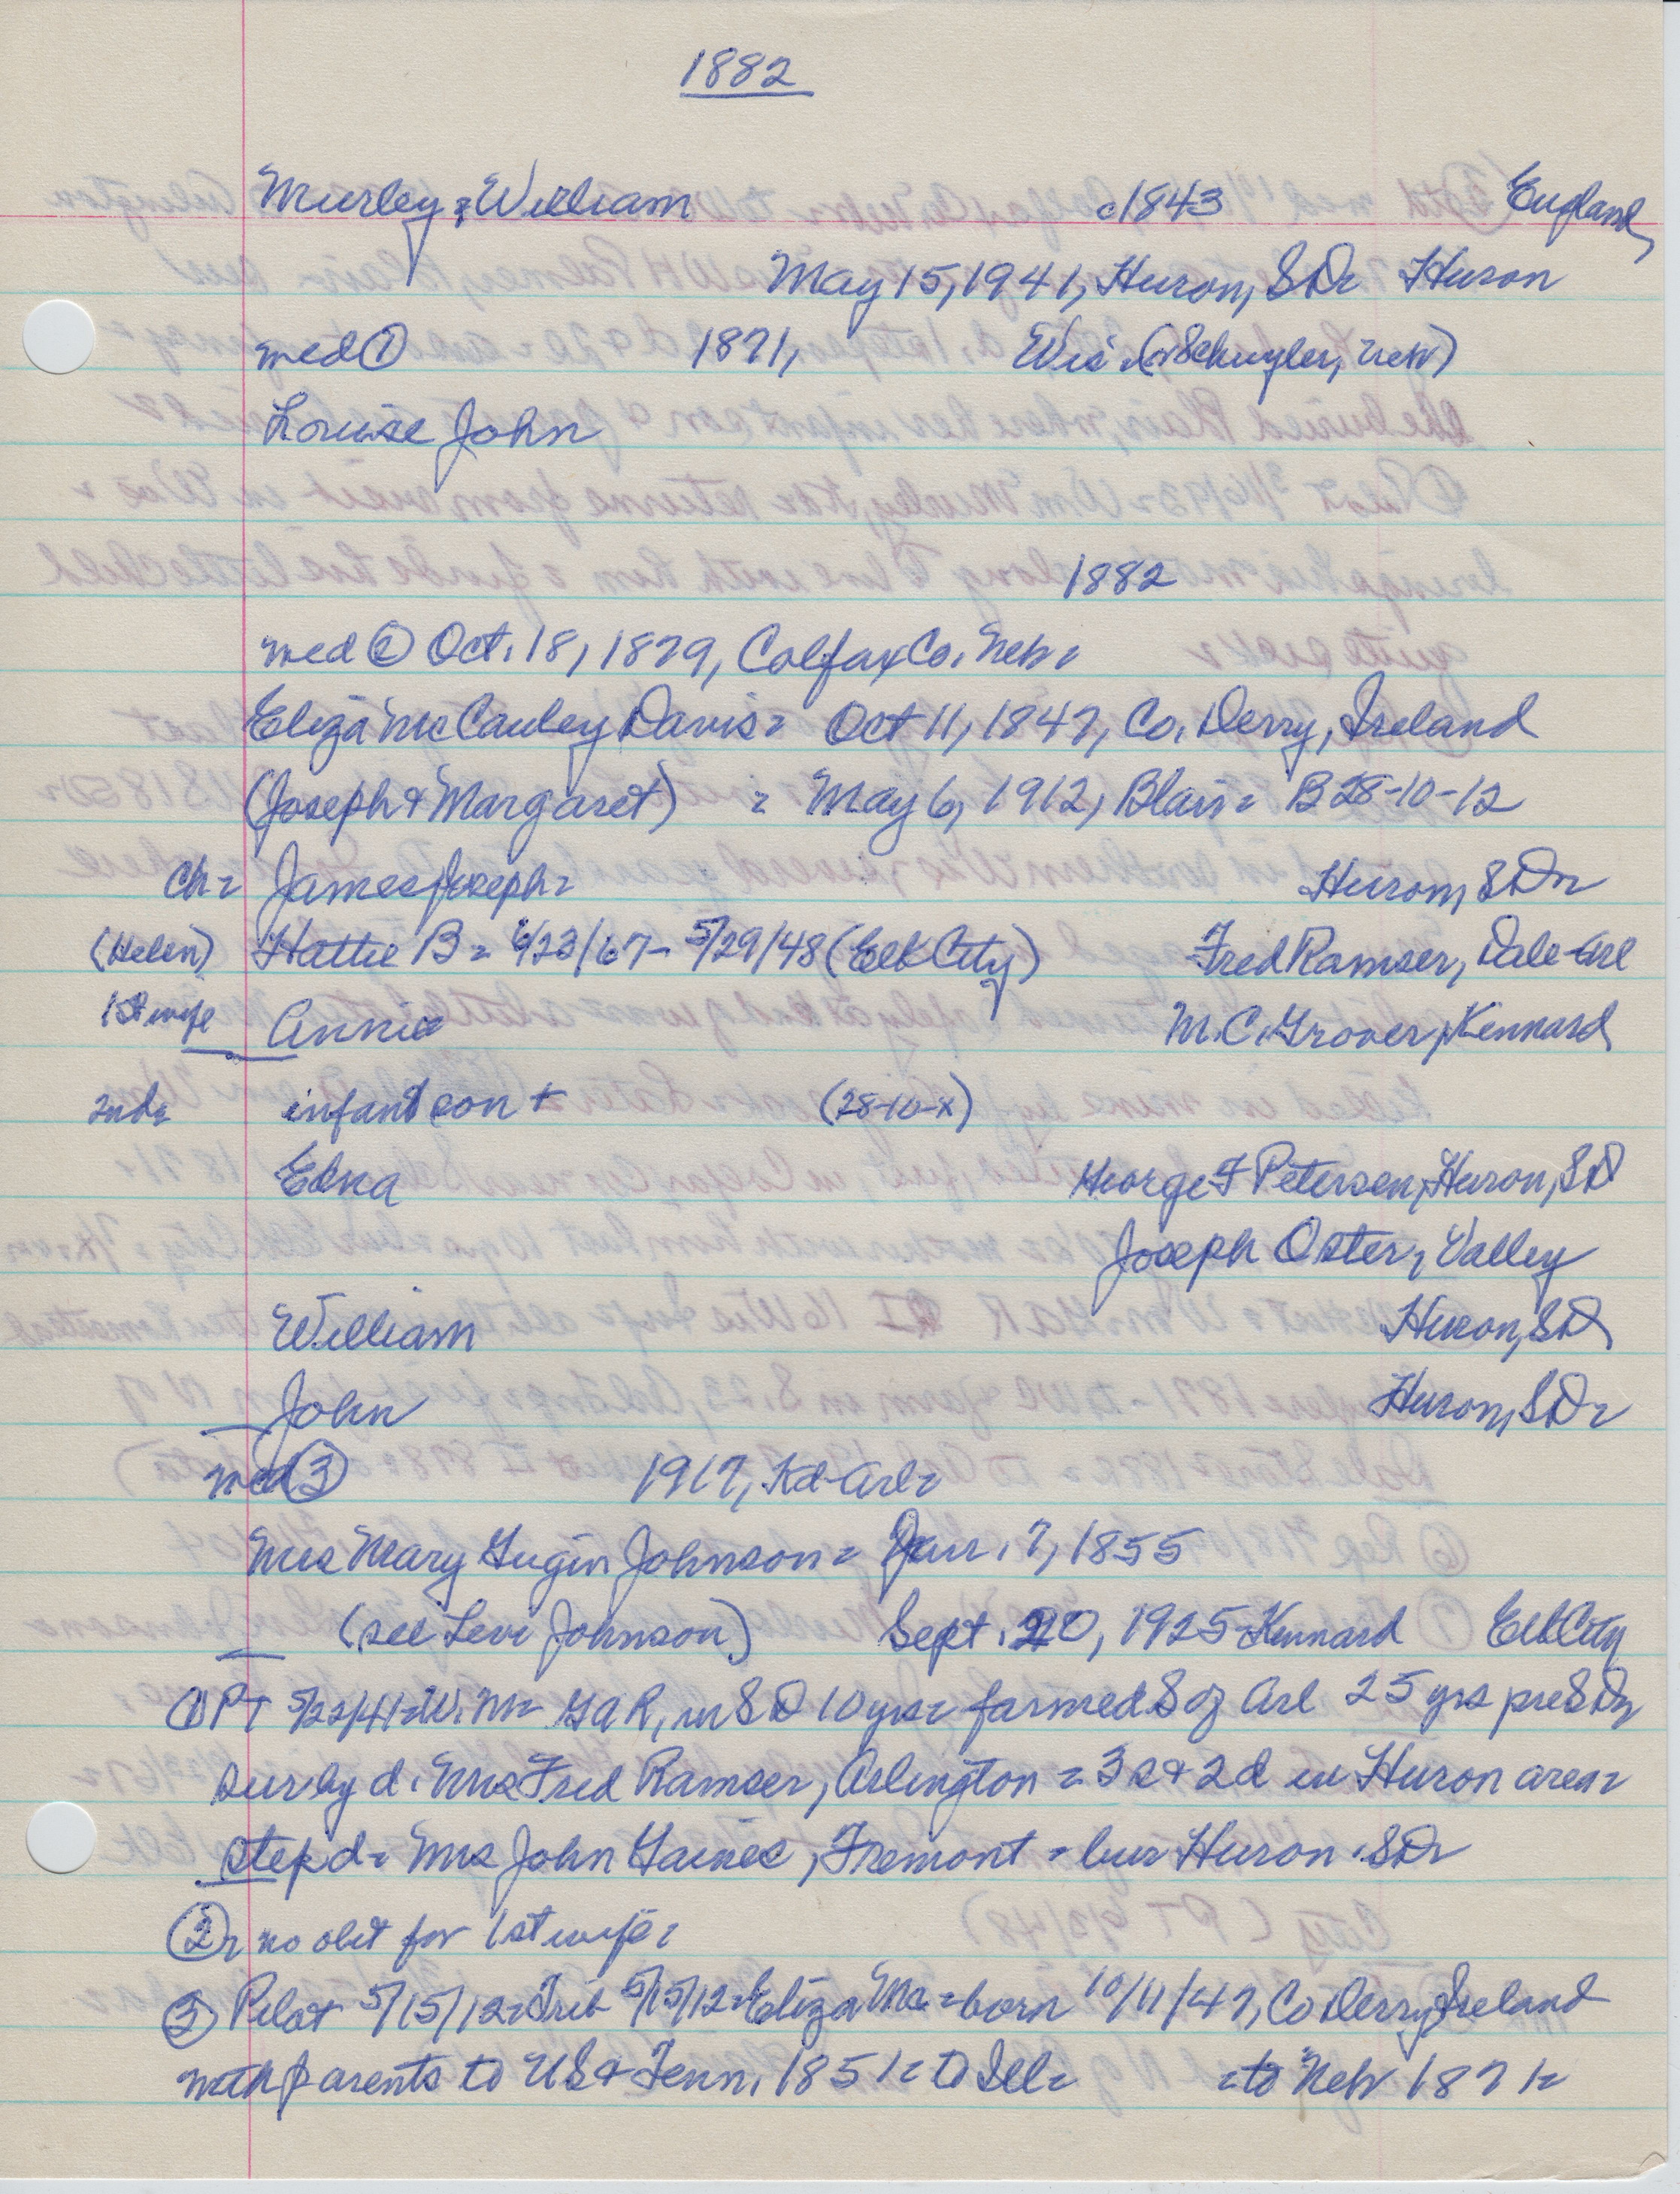 1882
Murley, William c1843 England
May 15, 1941, Huron, SD= Huron
med ① 1871, Wis. (or Schuyler, Neb)
Louise John
1882
med ② Oct. 18, 1879, Colfax Co. Neb=
Eliza McCauley Davis= Oct 11, 1847, Co. Derry, Ireland
(Joseph + Margaret) = May 6, 1912, Blair= B 28-10-12
Ch= James Joseph= Huron, SD=
(Helen) Hattie B= 6/23/67- 5/29/48 (Elk City) Fred Ramser, Dale-Arl
1st wife Annie M.C. Grover, Kennard
2nd= infant son + (28-10-x)
Edna George F Petersen, Huron, SD
Joseph Oster, Valley
William Huron, SD
John Huron, SD=
med ③ 1917, Kd-Arl=
Mrs Mary Gugin Johnson= Jan. 7, 1855
(see Levi Johnson) Sept. 20, 1925-Kennard Elk City
① PT 5/22/41=W.M= GAR, in SD 10 yrs= farmed S of Arl 25 yrs pre SD=
sur by d. Mrs Fred Ramser, Arlington = 3s + 2d in Huron area=
step d= Mrs John Gaines, Fremont = bur Huron SD=
②= no obit for 1st wife=
③ Pilot 5/15/12=Trib 5/15/12=Eliza Mc=born 10/11/47, Co Derry, Ireland
with parents to US + Tenn, 1851= to Ill= =to Neb 1871=